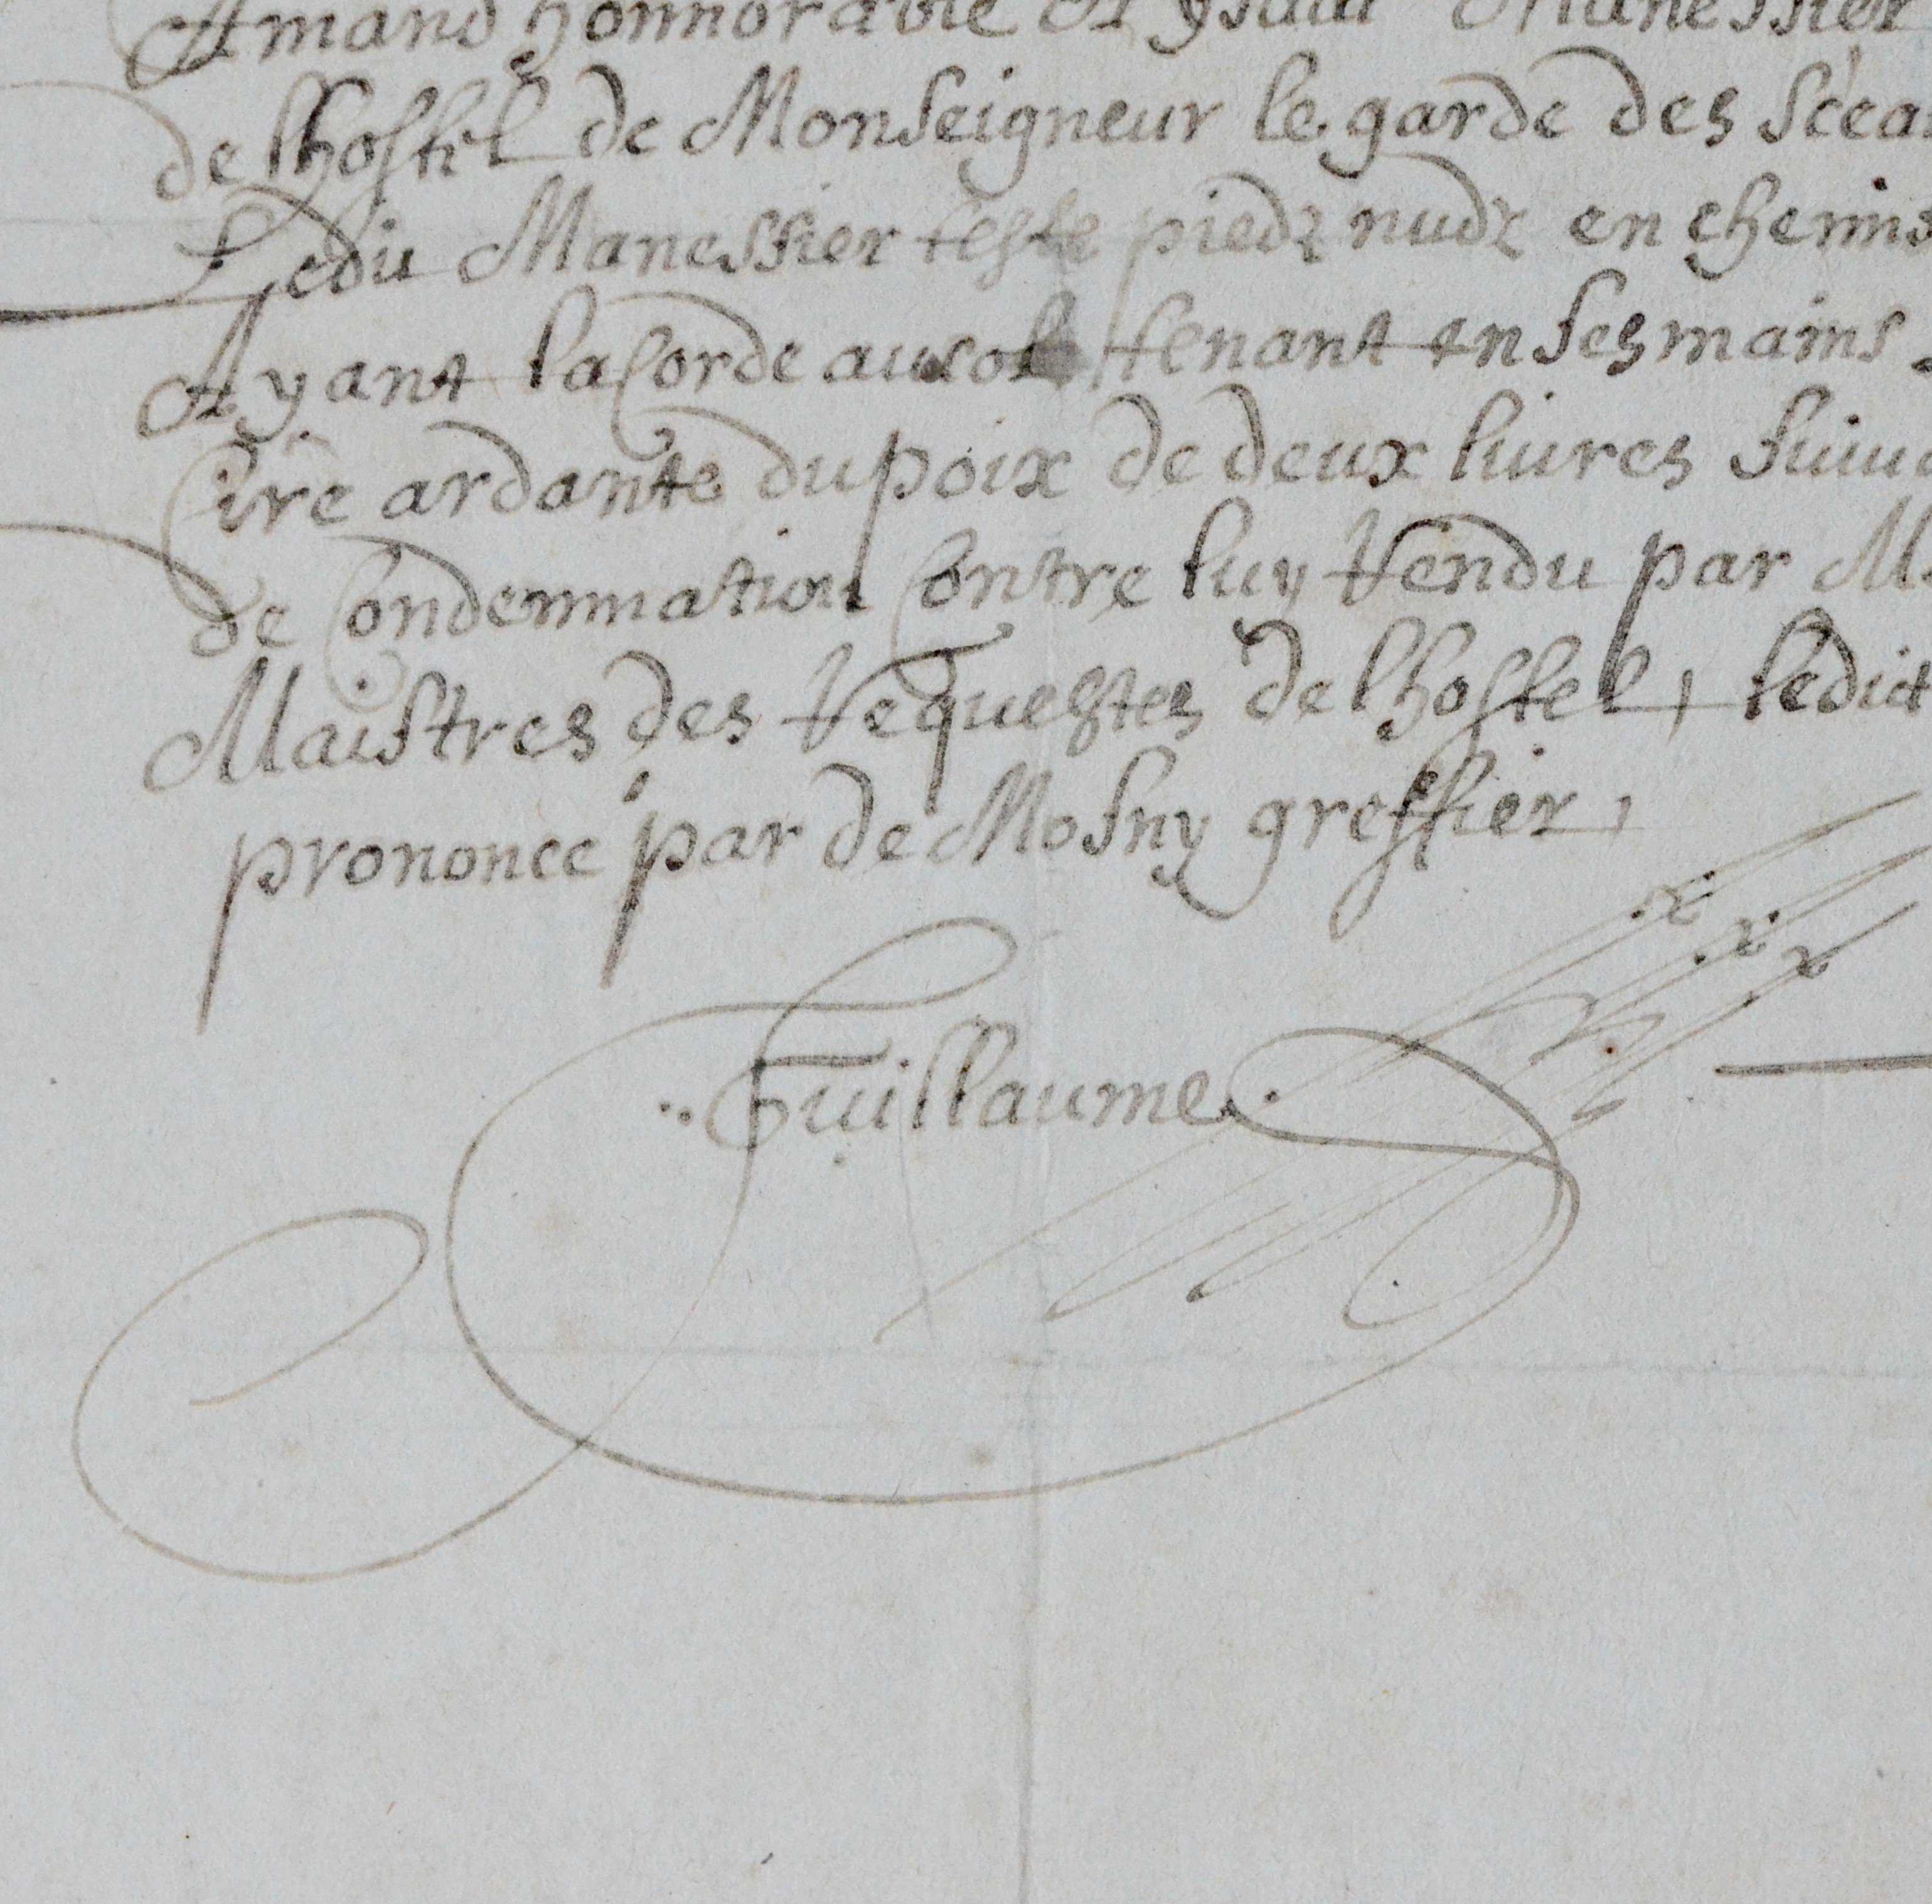 Amand honnorable A ysaui Manessier
de lhostel de Monseigneur le garde des scea
Ledu Manessier teste piedz nudz en chemis
Ayant la Corde au col tenant en ses mains
Cire ardante du poix de deux liures suiu
de Condemnation Contre luy Rendu par M
Maistres des Requestes de lhostel, ledict
prononcé par de Mosny greffier,
Guillaume